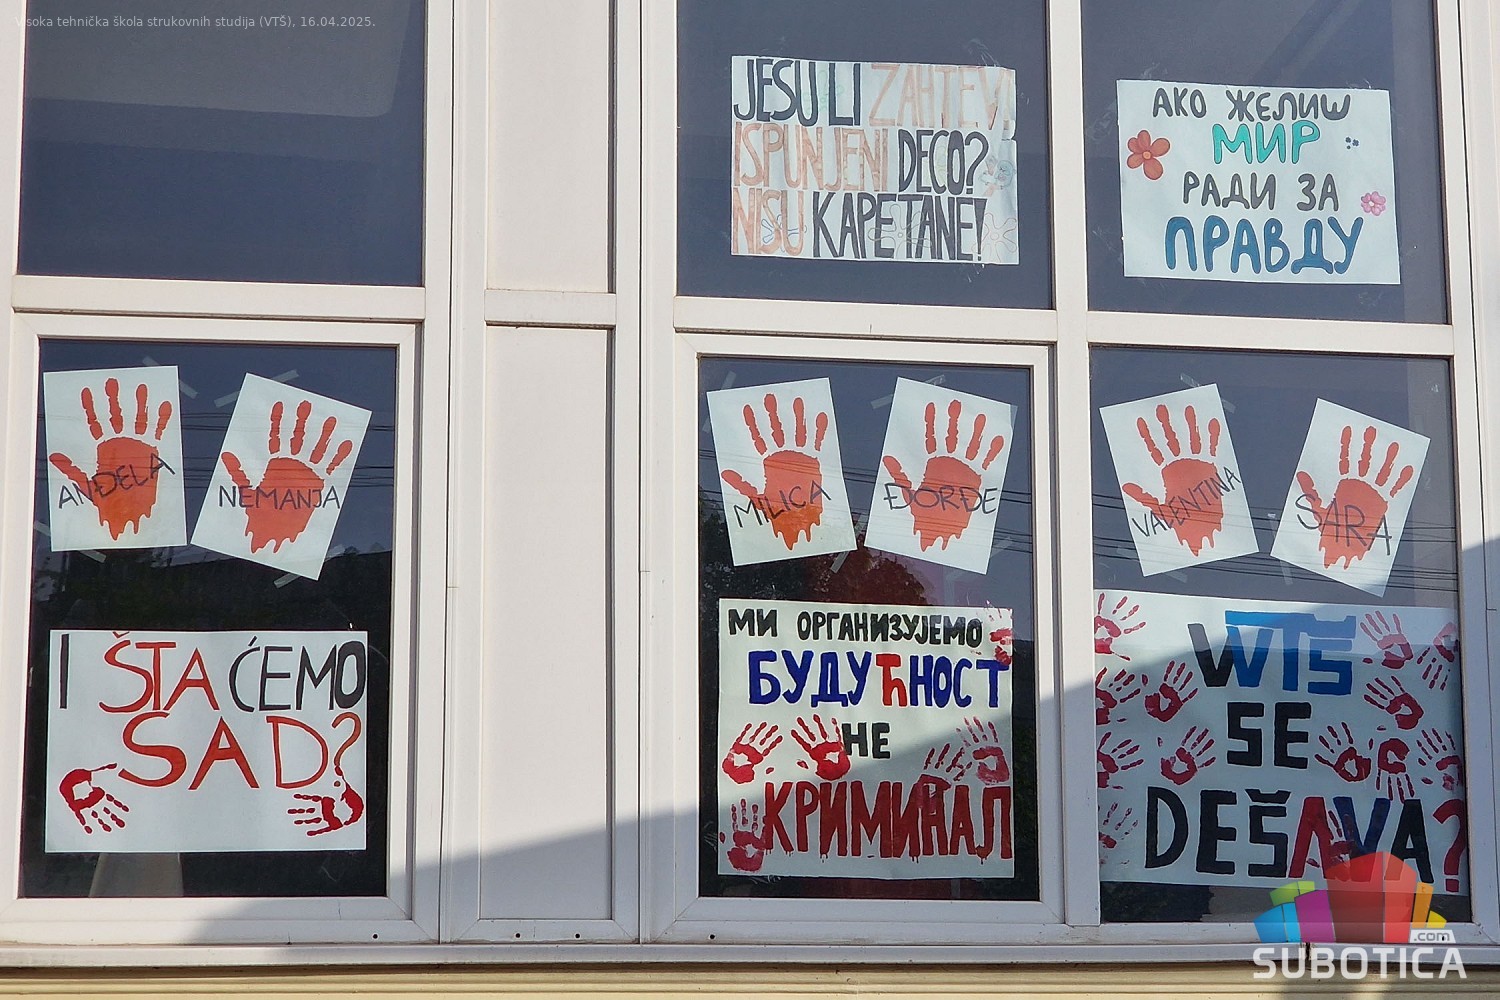 isoka tehnička škola strukovnih studija (VTŠ), 16.04.2025.
JESU LI ZAHTEVI
ISPUNJENI DECO?
NISU KAPETANE!
АКО ЖЕЛИШ
МИР
РАДИ ЗА
ПРАВДУ
ANĐELA
NEMANJA
MILICA
ĐORĐE
VALENTINA
SARA
I ŠTA ĆEMO
SAD?
МИ ОРГАНИЗУЈЕМО
БУДУЋНОСТ
НЕ
КРИМИНАЛ
VVTŠ
SE
DEŠAVA?
.com
SUBOTICA